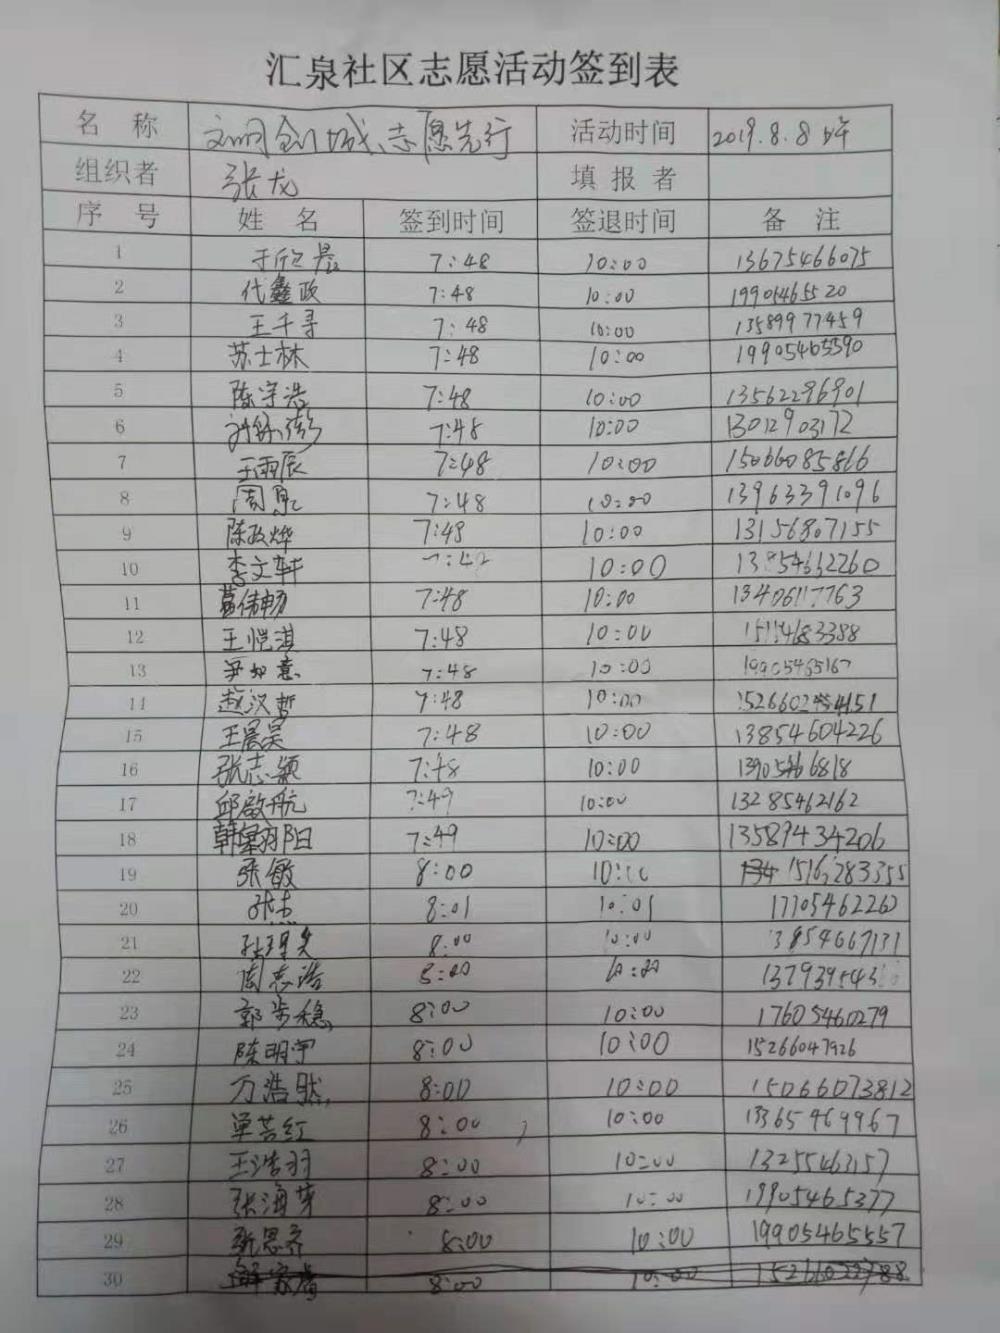 汇泉社区志愿活动签到表
名 称 文明创城、志愿先行 活动时间 2019.8.8
组织者 张龙 填 报 者
序 号 姓 名 签到时间 签退时间 备 注
1 于欣晨 7:48 10:00 13675466075
2 代鑫政 7:48 10:00 19905465520
3 王千寻 7:48 10:00 13589977459
4 苏士林 7:48 10:00 19905465590
5 陈宇浩 7:48 10:00 13562296901
6 7:48 10:00 13012903172
7 王雨辰 7:48 10:00 15066085866
8 周 7:48 10:00 13963391096
9 陈政烨 7:48 10:00 13156807155
10 李文轩 10:00 13854632260
11 7:48 10:00 13406117763
12 王恺淇 7:48 10:00
13 尹如意 7:48 10:00 19905465167
14 赵汉哲 7:48 10:00
15 王晨昊 7:48 10:00 13854604226
16 张志颖 7:48 10:00 13905466818
17 邱啟航 7:49 10:00 13285462162
18 韩 阳 7:49 10:00 13589434206
19 张敏 8:00 10:00 15163283355
20 8:01 10:01 17705462260
21 8:00 10:00 3854667131
22 周志浩 8:00 10:00
23 郭步稳 8:00 10:00 17605460279
24 陈明宇 8:00 10:00 15266047926
25 万浩然 8:00 10:00 15066073812
26 单芸红 8:00 10:00 13365469967
27 王浩羽 8:00 10:00 13255463157
28 张海芽 8:00 10:00 19905465377
29 靳思齐 8:00 10:00 19905465557
30 8:00 10:00